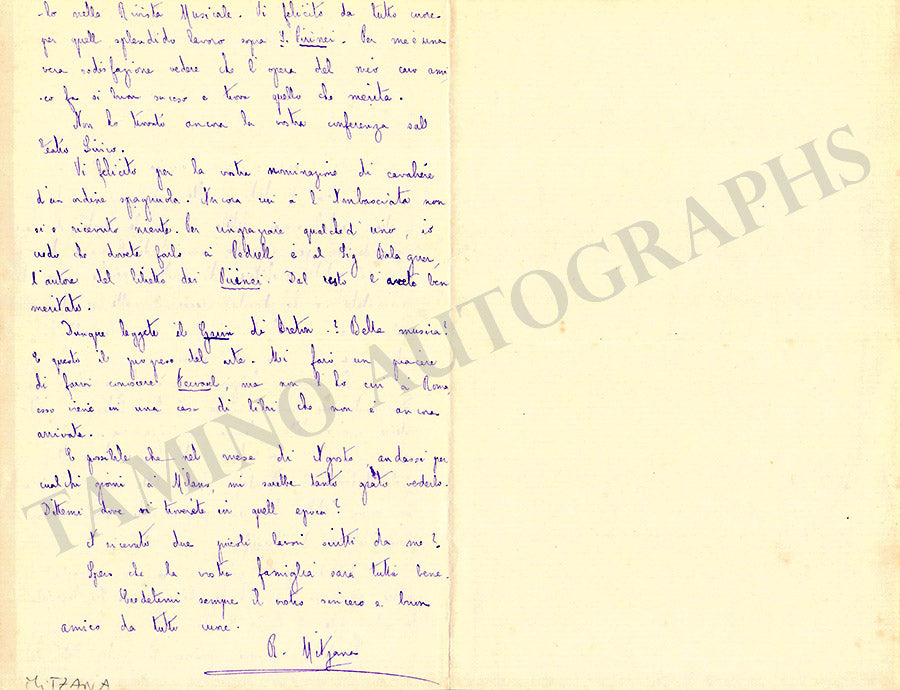 -lo nella Rivista Musicale. Vi felicito da tutto cuore
per quell splendido lavoro sopra I Pirinei. Per me è una
vera sodisfazione vedere che l'opera del mio caro ami
-co fa si buon suceso e trova quello che merita.
Non ho trovato ancora la vostra conferenza sull
Teatro Lirico.
Vi felicito per la vostra nominazione di cavaliére
d'un ordine spagnuola. Ancora cui a l'Ambasciata non
si è ricevuto niente. Per ringraziare qualched'uno, io
credo che dovete farlo a Pedrell e al Sig Balaguer,
l'autore del libretto dei Pirinei. Del resto l'avete ben
meritato.
Dunque leggete il Garin di Breton.? Bella musica?
E questo il progreso del arte. Mi faró un piacere
di farvi conoscere, ma non l'ho cui a Roma,
esso viene in una casa di libri che non é ancora
arrivata.
E possibile che nel mese di Agosto andassi per
qualchi giorni a Milano, mi sarebbe tanto grato vederlo.
Ditemi dove vi troverete in quell epoca?
A ricevuto due piccoli lavori scritti da me?
Spero che la vostra famiglia sará tutta bene.
Credetemi sempre il vostro sincero e buon
amico da tutto cuore.
R. Mitjana
MiTJANA
TAMINO AUTOGRAPHS